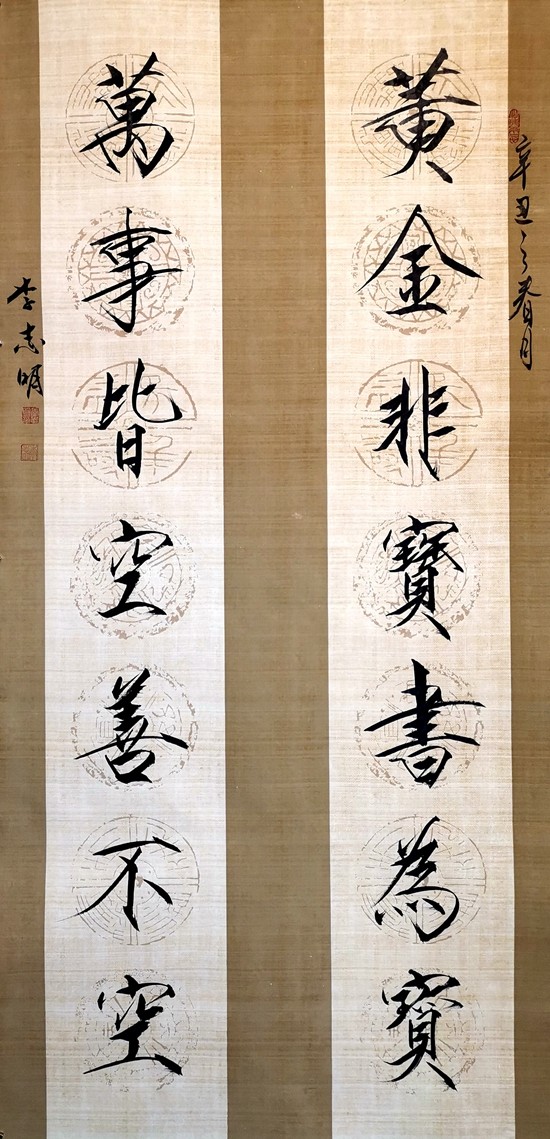 辛丑之春月
黄金非寶書為寶
萬事皆空善不空
李志明